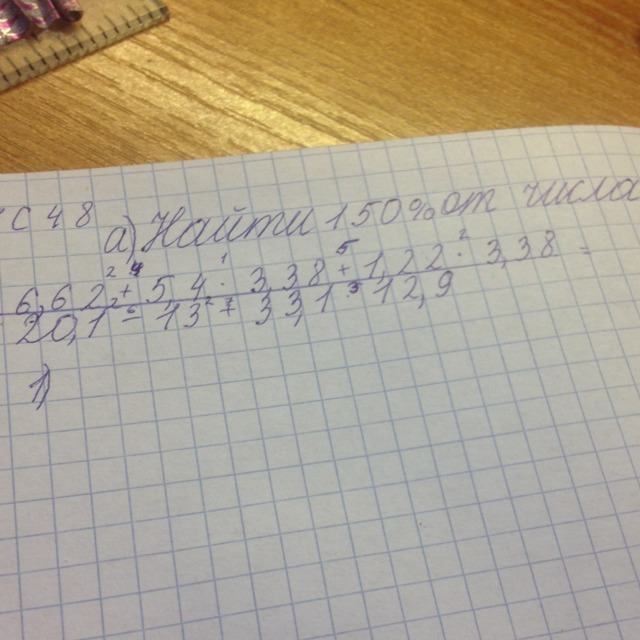 С 48
а) Найти 150% от числа
6,62² + 5 4 · 3,38 + 1,22 · 3,38 =
20,1² - 13² + 33,1 · 12,9